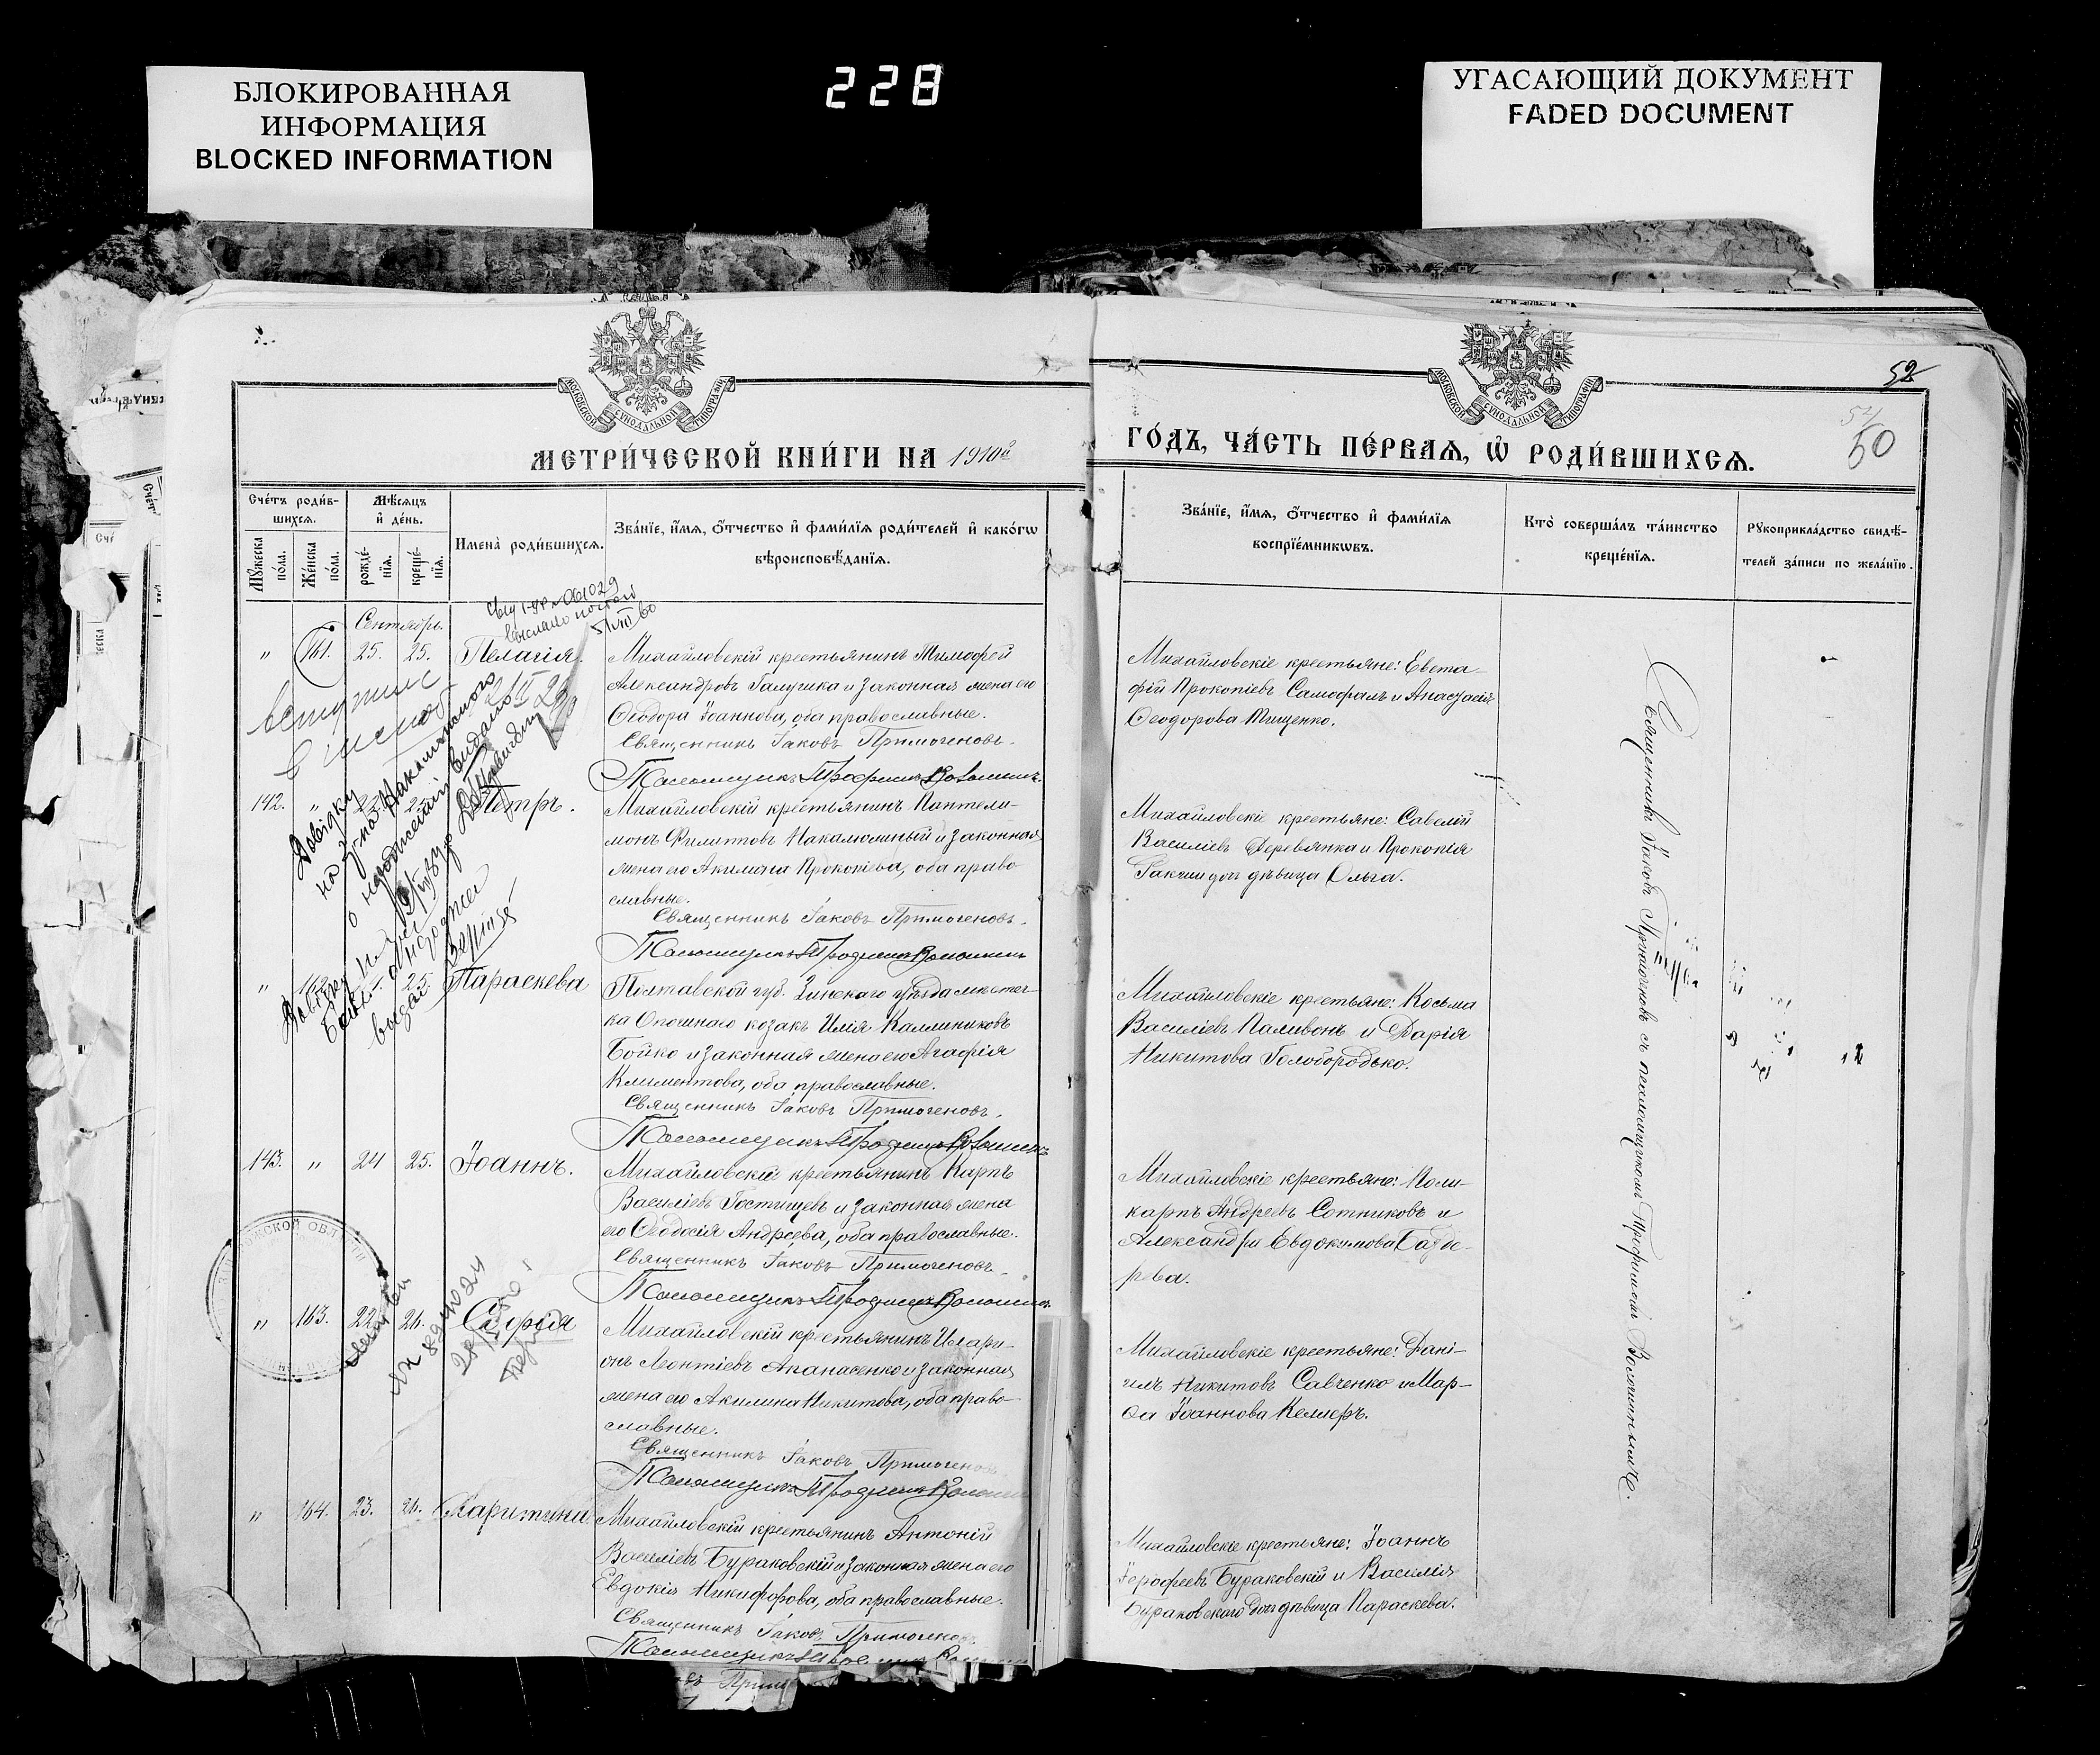 БЛОКИРОВАННАЯ
ИНФОРМАЦИЯ
BLOCKED INFORMATION
228
УГАСАЮЩИЙ ДОКУМЕНТ
FADED DOCUMENT
МОСКОВСКОЙ СѴНОДАЛЬНОЙ ТИПОГРАФІИ
МОСКОВСКОЙ СѴНОДАЛЬНОЙ ТИПОГРАФІИ
52
50
МЕТРИ́ЧЕСКОЙ КНИ́ГИ НА 1910й
ГО́ДЪ, ЧА́СТЬ ПЕ́РВАѦ, Ѡ҆ РОДИ́ВШИХСѦ.
Сче́тъ роди́в-
шихсѧ.
Мꙋ́жеска по́ла.
Же́нска по́ла.
Мѣ́сѧцъ
и҆ де́нь.
рожде́-
нїѧ.
креще́-
нїѧ.
И҆мена̀ роди́вшихсѧ.
Зва́нїе, и҆́мѧ, ѻ҆́тчество и҆ фами́лїѧ роди́телей и҆ како́гѡ
вѣроисповѣ́данїѧ.
Зва́нїе, и҆́мѧ, ѻ҆́тчество и҆ фами́лїѧ
воспрїе́мникѡвъ.
Кто̀ соверша́лъ та́инство
креще́нїѧ.
Рꙋкоприкла́дство свидѣ́-
телей за́писи по жела́нїю.
Сентябрь.
" 161. 25. 25. Пелагія.
Михайловскій крестьянинъ Тимофей
Александровъ Галушка и законная жена его
Ѳеодора Іоаннова, оба православные.
Священникъ Іаковъ Примогеновъ.
Псаломщикъ Трофимъ Волошинъ.
Михайловскіе крестьяне: Евста-
фій Прокопіевъ Самофалъ и Анастасія
Ѳеодорова Тищенко.
142. " 25. Петръ.
Михайловскій крестьянинъ Пантели-
монъ Филипповъ Накалюжный и законная
жена его Акилина Прокопіева, оба право-
славные.
Священникъ Іаковъ Примогеновъ.
Псаломщикъ Трофимъ Волошинъ
Михайловскіе крестьяне: Савелій
Василіевъ Деревянка и Прокопія
дочь дѣвица Ольга.
" 162. 25. Параскева
Полтавской губ. Зинскаго уѣзда мѣстеч-
ка Опошнаго козакъ Илія Каллиниковъ
Бойко и законная жена его Агафія
Климентова, оба православные.
Священникъ Іаковъ Примогеновъ.
Псаломщикъ Трофимъ Волошинъ
Михайловскіе крестьяне: Косьма
Василіевъ Паливонъ и Дарія
Никитова Голобородько.
143. " 24 25. Іоаннъ.
Михайловскій крестьянинъ Карпъ
Василіевъ Гостищевъ и законная жена
его Ѳеодосія Андреева, оба православные.
Священникъ Іаковъ Примогеновъ.
Псаломщикъ Трофимъ Волошинъ
Михайловскіе крестьяне: Поли-
карпъ Андреевъ Сотниковъ и
Александра Евдокимова
" 163. 22. 26. Софія
Михайловскій крестьянинъ Илари-
онъ Леонтіевъ Апанасенко и законная
жена его Акилина Никитова, оба право-
славные.
Священникъ Іаковъ Примогеновъ
Псаломщикъ Трофимъ Волошин
Михайловскіе крестьяне: Дані-
илъ Никитовъ Савченко и Мар-
ѳа Іоаннова Келлеръ.
" 164. 23. 26. Харитина.
Михайловскій крестьянинъ Антоній
Василіевъ Бураковскій и законная жена его
Евдокія Никифорова, оба православные.
Священникъ Іаковъ Примогенов
Псаломщикъ
Михайловскіе крестьяне: Іоаннъ
Іерофеевъ Бураковскій и Василія
Бураковскаго дочь дѣвица Параскева.
Священникъ Іаковъ Примогеновъ съ псаломщикомъ Трофимомъ Волошинымъ.